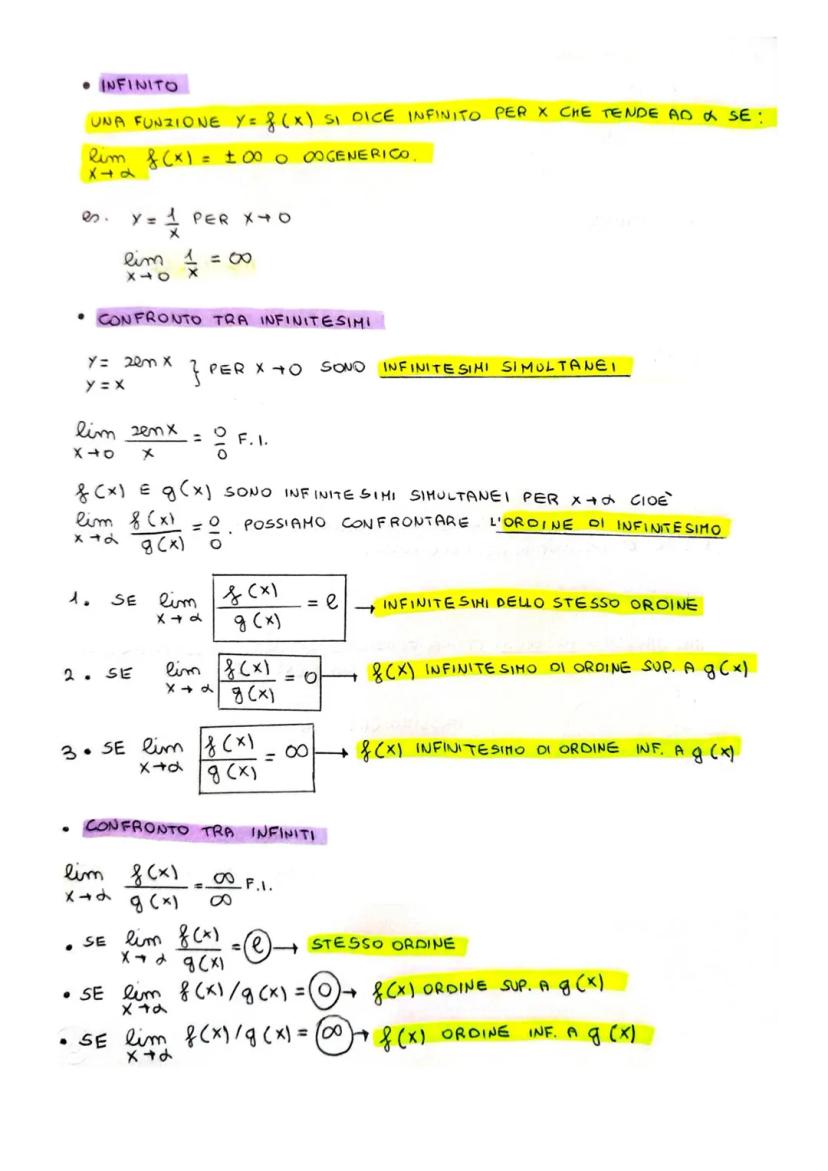 • INFINITO
UNA FUNZIONE Y = f(x) SI DICE INFINITO PER X CHE TENDE AD α SE:
lim x→α f(x) = ±∞ O ∞ GENERICO.
es. y = 1/x PER X→0
lim x→0 1/x = ∞
• CONFRONTO TRA INFINITESIMI
y = sen x
y = x } PER X→0 SONO INFINITESIMI SIMULTANEI
lim x→0 sen x / x = 0/0 F.I.
f(x) E g(x) SONO INFINITESIMI SIMULTANEI PER x→α CIOÈ
lim x→α f(x)/g(x) = 0/0. POSSIAMO CONFRONTARE L'ORDINE DI INFINITESIMO
1. SE lim x→α f(x)/g(x) = l → INFINITESIMI DELLO STESSO ORDINE
2. SE lim x→α f(x)/g(x) = 0 → f(x) INFINITESIMO DI ORDINE SUP. A g(x)
3. SE lim x→α f(x)/g(x) = ∞ → f(x) INFINITESIMO DI ORDINE INF. A g(x)
• CONFRONTO TRA INFINITI
lim x→α f(x)/g(x) = ∞/∞ F.I.
• SE lim x→α f(x)/g(x) = l → STESSO ORDINE
• SE lim x→α f(x)/g(x) = 0 → f(x) ORDINE SUP. A g(x)
• SE lim x→α f(x)/g(x) = ∞ → f(x) ORDINE INF. A g(x)